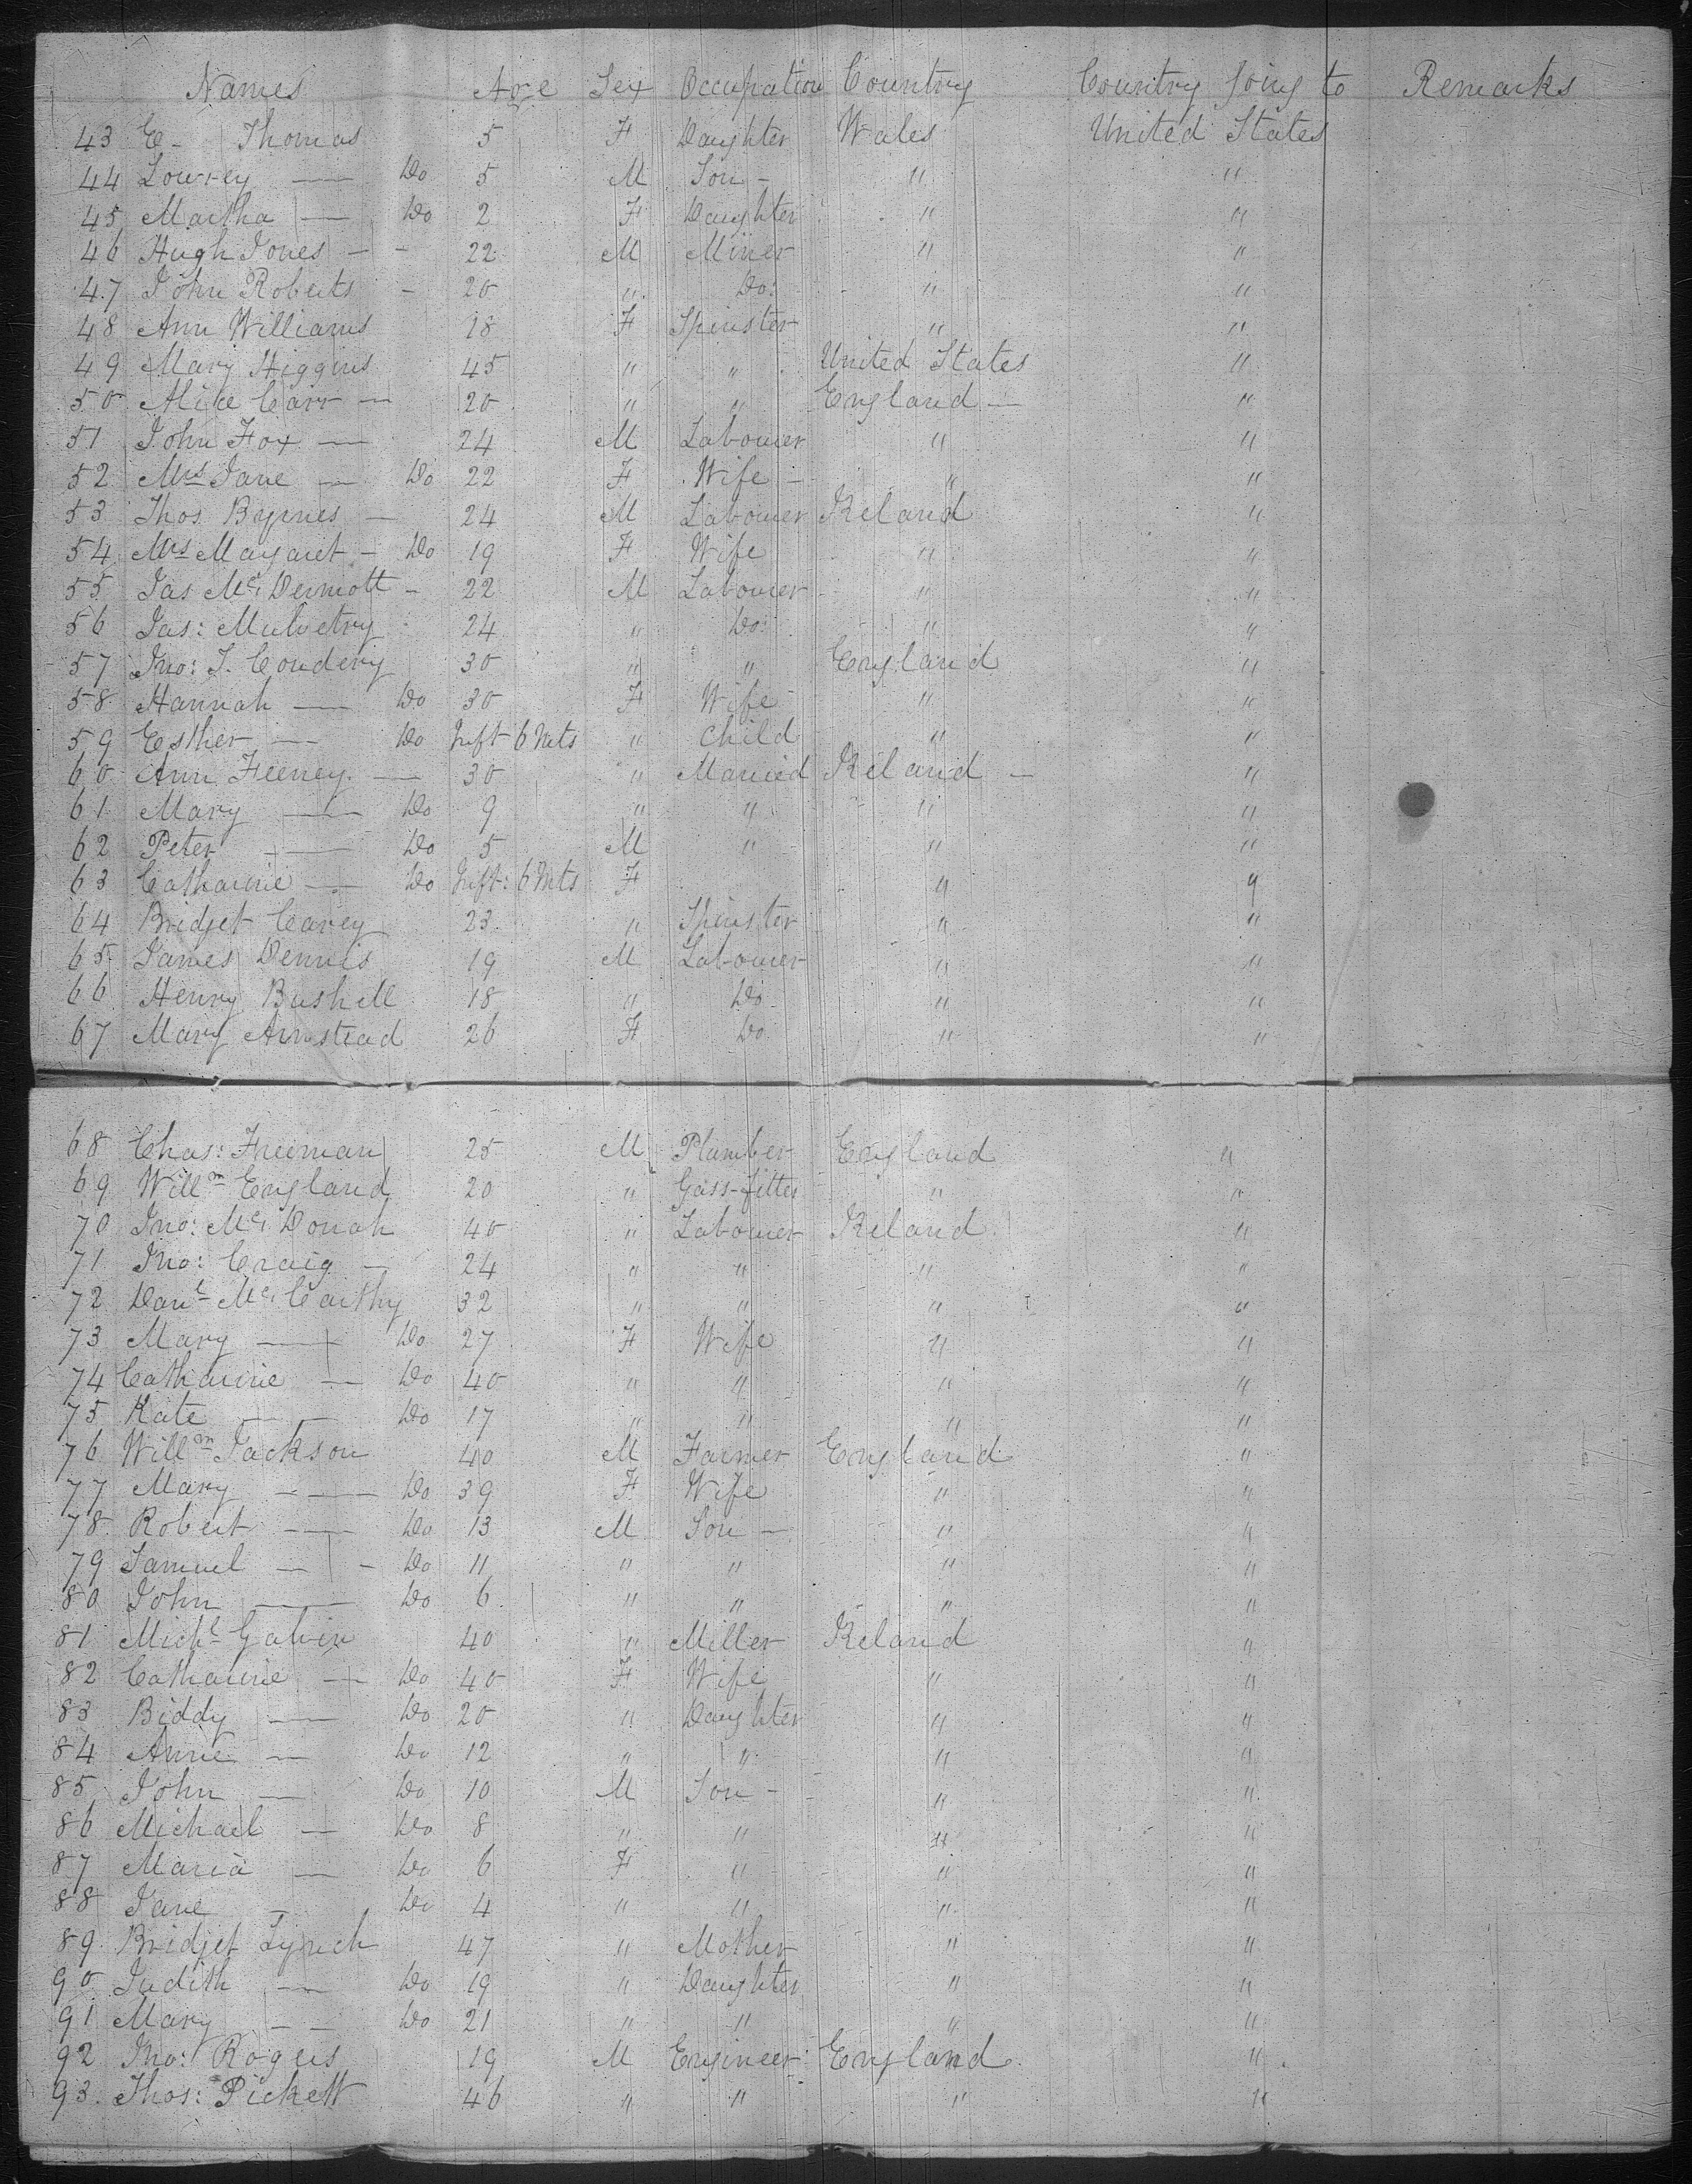 Names Age Sex Occupation Country Country Going to Remarks
43 E- Thomas 5 F Daughter Wales United States
44 Lowrey — Do 5 M Son - " "
45 Martha — Do 2 F Daughter " "
46 Hugh Jones - - 22 M Miner " "
47 John Roberts - 20 " Do: " "
48 Ann Williams 18 F Spinster " "
49 Mary Higgins 45 " " United States "
50 Alice Carr — 20 " " England — "
51 John Fox — 24 M Labourer " "
52 Mrs Jane — Do 22 F Wife - " "
53 Thos Byrnes — 24 M Labourer Ireland "
54 Mrs Margaret - Do 19 F Wife " "
55 Jas Mc Dermott - 22 M Labourer " "
56 Jas: Mulvetry 24 " Do: " "
57 Jno: J. Coudery 30 " " England "
58 Hannah — Do 30 F Wife " "
59 Esther — Do Inft 6 Mts " Child " "
60 Ann Feeney — 30 " Married Ireland — "
61 Mary — Do 9 " " " "
62 Peter — Do 5 M " " "
63 Catharine — Do Inft: 6 Mts F " "
64 Bridget Carey 23 " Spinster " "
65 James Dennis 19 M Labourer " "
66 Henry Bushell 18 " Do " "
67 Mary Armstead 26 F Do " "
68 Chas: Freeman 25 M Plumber England "
69 Willm England 20 " Gass-fitter " "
70 Jno: Mc Donah 40 " Labourer Ireland "
71 Jno: Craig — 24 " " " "
72 Danl Mc Carthy 32 " " " "
73 Mary — Do 27 F Wife " "
74 Catharine — Do 40 " " " "
75 Kate — Do 17 " " " "
76 Willm Jackson 40 M Farmer England "
77 Mary — Do 39 F Wife " "
78 Robert — Do 13 M Son — " "
79 Samuel — - Do 11 " " " "
80 John — Do 6 " " " "
81 Michl Galvin 40 " Miller Ireland "
82 Catharine — Do 40 F Wife " "
83 Biddy — Do 20 " Daughter " "
84 Anne — Do 12 " " " "
85 John — Do 10 M Son - " "
86 Michael — Do 8 " " " "
87 Maria — Do 6 F " " "
88 Jane - Do 4 " " " "
89 Bridget Lynch 47 " Mother " "
90 Judith — Do 19 " Daughter " "
91 Mary — Do 21 " " " "
92 Jno: Rogers 19 M Engineer England "
93 Thos: Pickett 46 " " " "